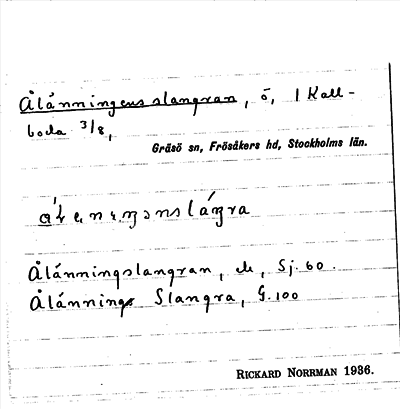 Ålänningens slangran, ö, 1 Kall-
boda 3/8,
Gräsö sn, Frösåkers hd, Stockholms län.
Ålänningslangran, Sj. 60.
Ålännings Slangra, G. 100
RICKARD NORRMAN 1936.